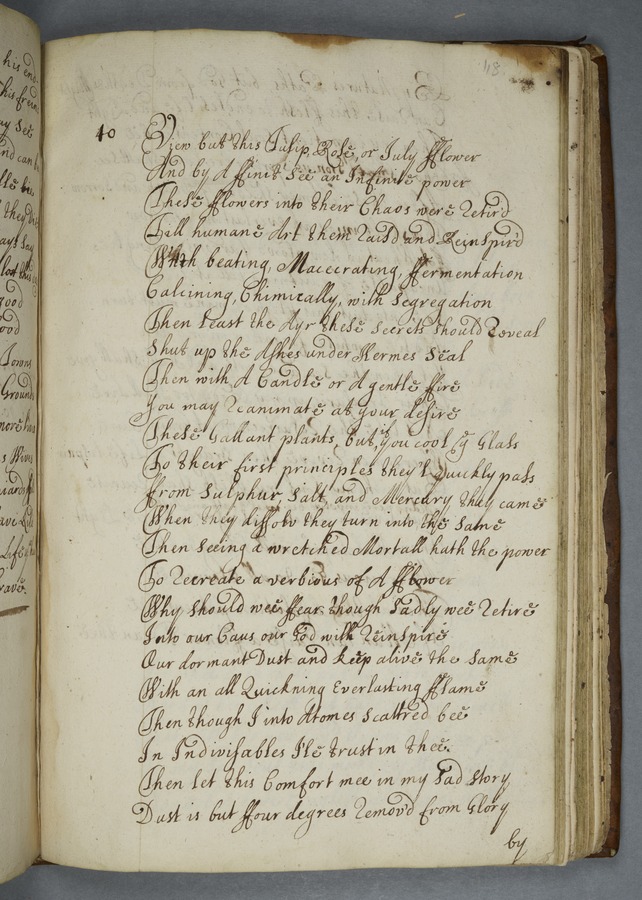 118
40
View but this Tulip, Rose, or July fflower
And by A ffinit See an Infinite power
These fflowers into their Chaos were Retir'd
Till humane Art them Raisd and Reinspir'd
With beating, Macecrating, ffermentation
Calcining, Chimically, with Segregation
Then least the Ayr these secrits should Reveal
Shut up the Ashes under Hermes Seal
Then with A Candle or A gentle ffire
You may Reanimate at your desire
These Gallant plants, but if you cool ye Glass
To their first principles they'l quickly pass
ffrom Sulphur, Salt, and Mercury they came
When they dissolv they turn into the Same
Then Seeing a wretched Mortall hath the power
To Recreate a verbious of A fflower
Why should wee ffear, though Sadly wee Retire
Into our Caus our God will Reinspire
Our dormant Dust and keep alive the Same
With an all Quickning Everlasting fflame
Then though I into Atomes Scattred bee
In Indivisables I'le trust in thee.
Then let this Comfort mee in my Sad Story
Dust is but ffour degrees Remov'd from Glory
by